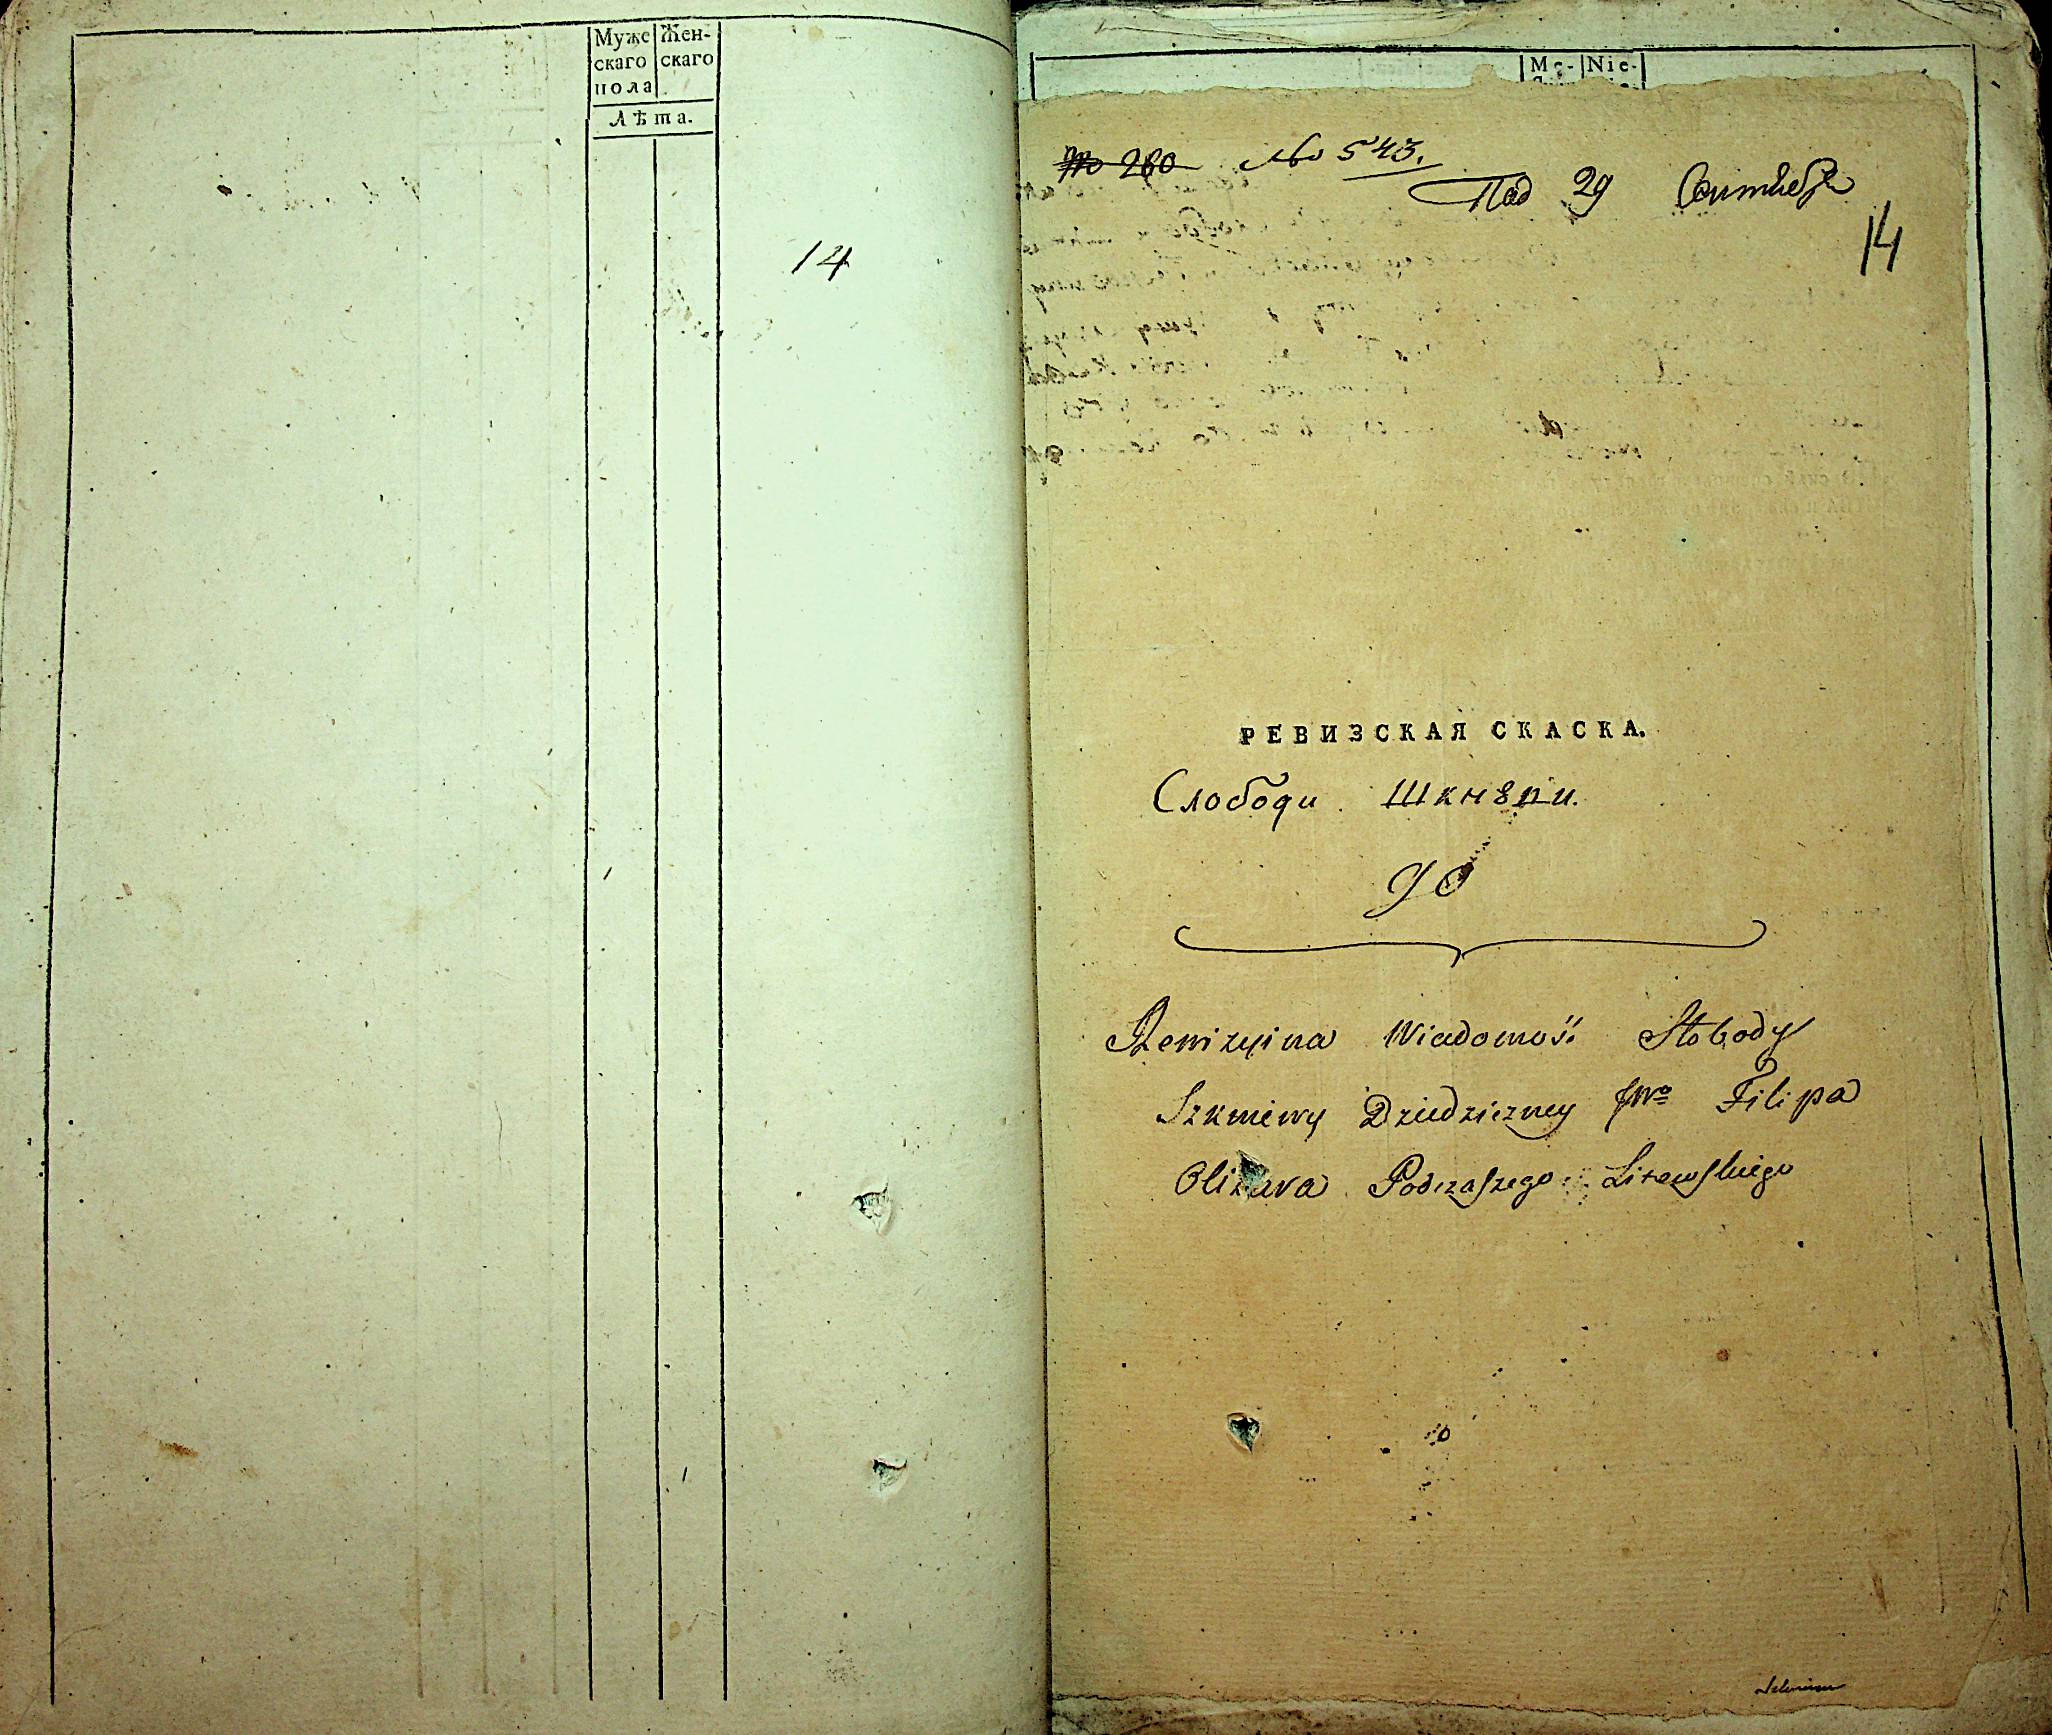 Муже Жен-
скаго скаго
пола
Лѣта.
14
Me- Nie-
No 260 No 543.
Под 29 Сентября
14
РЕВИЗСКАЯ СКАСКА.
Слободи Шкнѣви.
90
Rewizyina Wiadomość Słobody
Szkniewy Dziedziczney JWo Filipa
Olizara Podczaszego Litewskiego